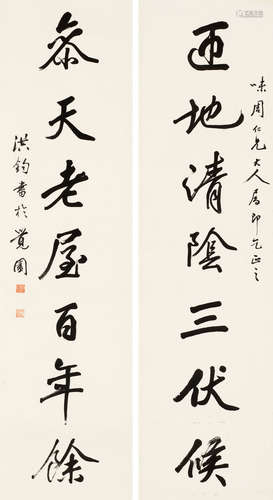 匝地清陰三伏候
味周仁兄大人屬即乞正之
參天老屋百年餘
洪鈞書於覺園